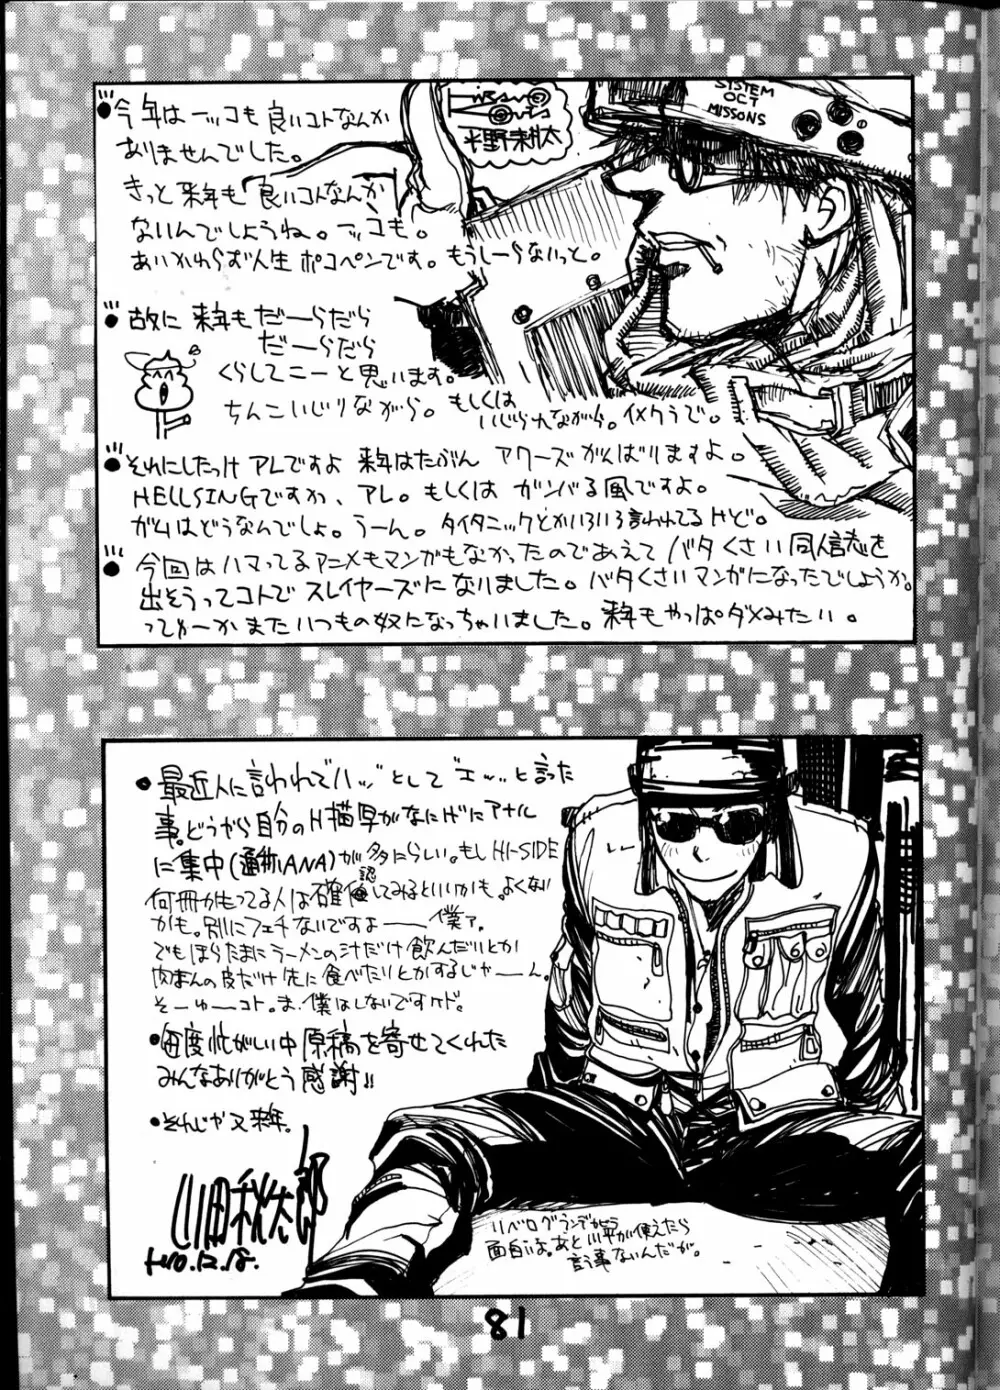 今年は一ッコも良いコトなんか
ありませんでした。
きっと来年も良いコトなんか
ないんでしょうね。一ッコも。
あいかわらず人生ポコペンです。もうしーらないっと。
故に来年もだーらだら
だーらだら
くらしてこーと思います。
ちんこいじりながら。もしくは
いじられながら。イメクラで。
それにしたっけアレですよ来年はたぶんアワーズがんばりますよ。
HELLSINGですか、アレ。もしくはガンバる風ですよ。
ガムはどうなんでしょ。うーん。タイタニックとかいろいろ言われてるけど。
今回はハマってるアニメもマンガもなかったのであえてバタくさい同人誌を
出そうってコトでスレイヤーズになりました。バタくさいマンガになったでしょうか。
ってゆーかまたいつもの奴になっちゃいました。来年もやっぱダメみたい。
平野耕太
SYSTEM
OCT
MISSONS
最近人に言われて"ハッ"として"エッ"と言った
事。どうやら自分のH描写がなにげにアナル
に集中(通称ANA)が多いらしい。もしHI-SIDE
何冊か持ってる人は確認してみるといいかも。よくない
かも。別にフェチないですよ――僕ァ。
でもほらたまにラーメンの汁だけ飲んだいとか
肉まんの皮だけ先に食べたいとかするじゃーん。
そーゆーコト。ま、僕はしないですけど。
毎度忙がしい中原稿を寄せてくれた
みんなありがとう感謝!!
そんじゃ又来年。
山田秋太郎
H10.12.18.
リベログランデから
面白いよ。あと川平が使えたら
言う事ないんだが。
81